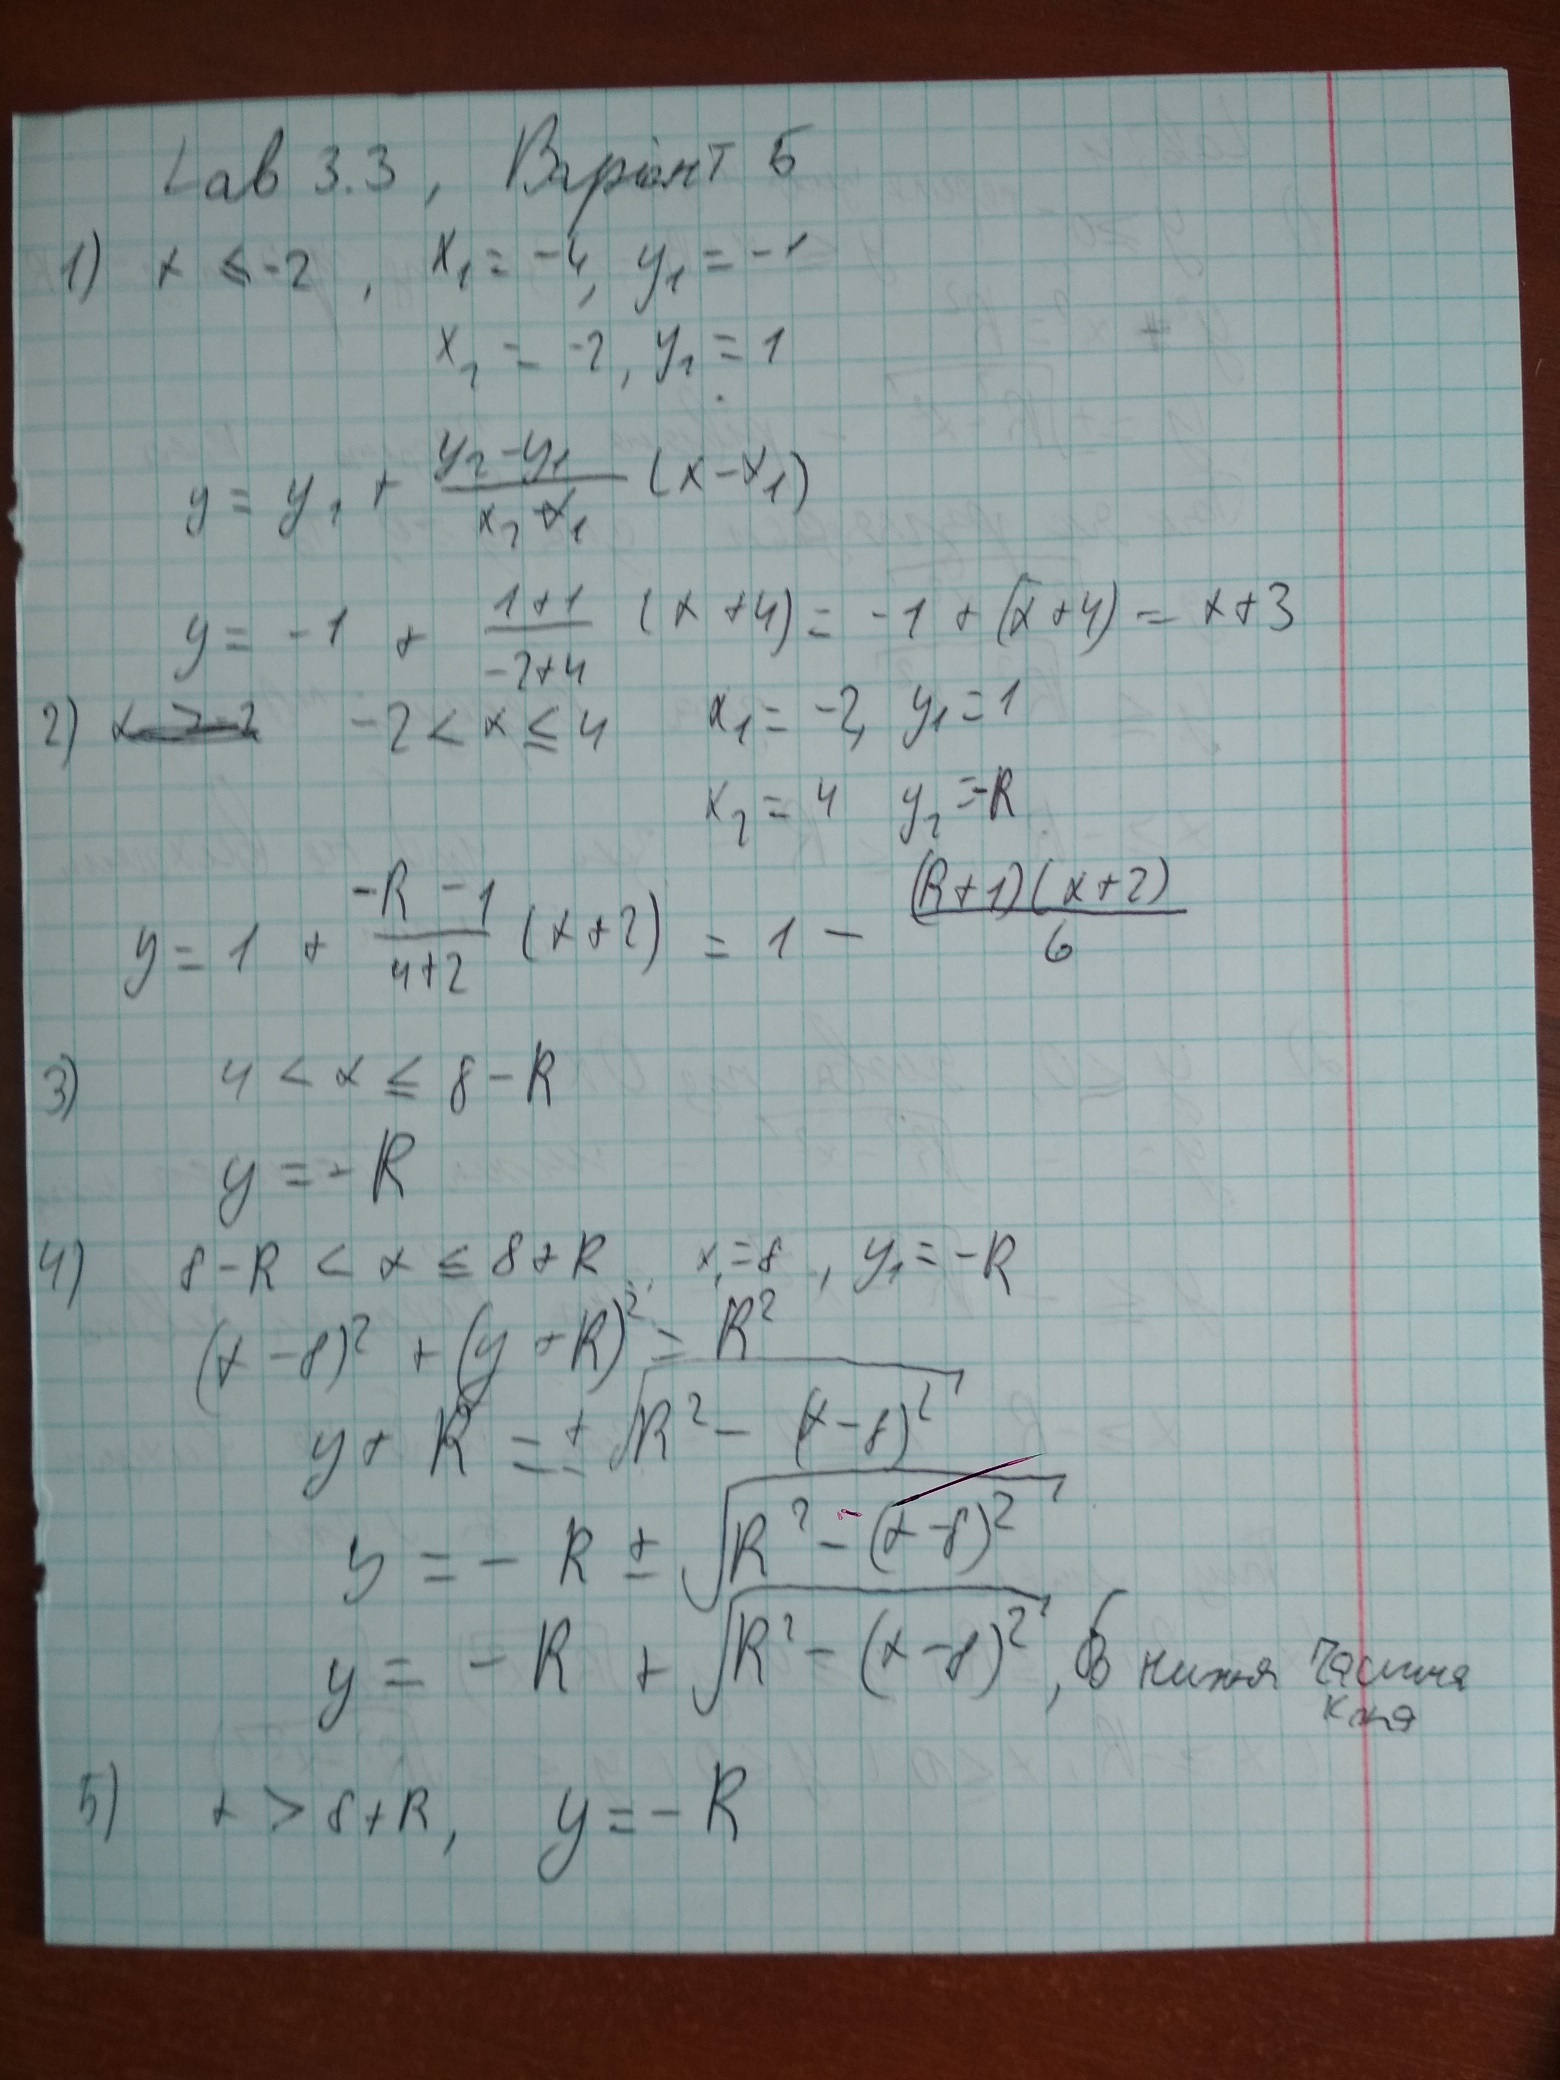 Lab 3.3, Варіант 5
1) x ≤ -2, x₁ = -4, y₁ = -1
x₂ = -2, y₂ = 1
y = y₁ + (y₂ - y₁)/(x₂ - x₁) (x - x₁)
y = -1 + (1+1)/(-2+4) (x+4) = -1 + (x+4) = x+3
2) -2 < x ≤ 4 x₁ = -2, y₁ = 1
x₂ = 4 y₂ = -R
y = 1 + (-R-1)/(4+2) (x+2) = 1 - ((R+1)(x+2))/6
3) 4 < x ≤ 8-R
y = -R
4) 8-R < x ≤ 8+R, x₁ = 8, y₁ = -R
(x-8)² + (y+R)² = R²
y + R = ± √(R² - (x-8)²)
y = -R ± √(R² - (x-8)²)
y = -R + √(R² - (x-8)²), нижня частина
5) x > 8+R, y = -R